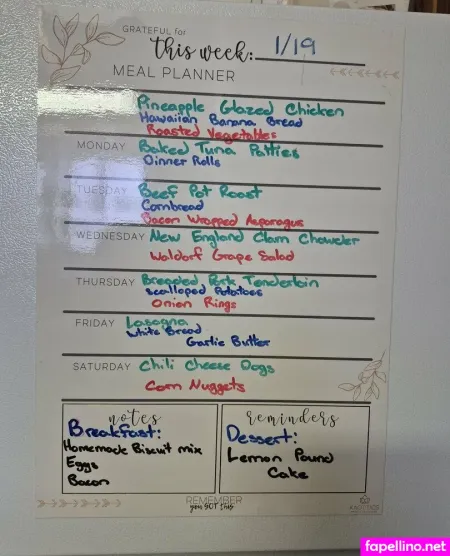 GRATEFUL for
this week: 1/19
MEAL PLANNER
Pineapple Glazed Chicken
Hawaiian Banana Bread
Roasted Vegetables
MONDAY Baked Tuna Patties
Dinner Rolls
TUESDAY Beef Pot Roast
Cornbread
Bacon Wrapped Asparagus
WEDNESDAY New England Clam Chowder
Waldorf Grape Salad
THURSDAY Breaded Pork Tenderloin
Scalloped Potatoes
Onion Rings
FRIDAY Lasagna
White Bread
Garlic Butter
SATURDAY Chili Cheese Dogs
Corn Nuggets
notes
Breakfast:
Homemade Biscuit mix
Eggs
Bacon
reminders
Dessert:
Lemon Pound
Cake
REMEMBER
you GOT this
fapellino.net